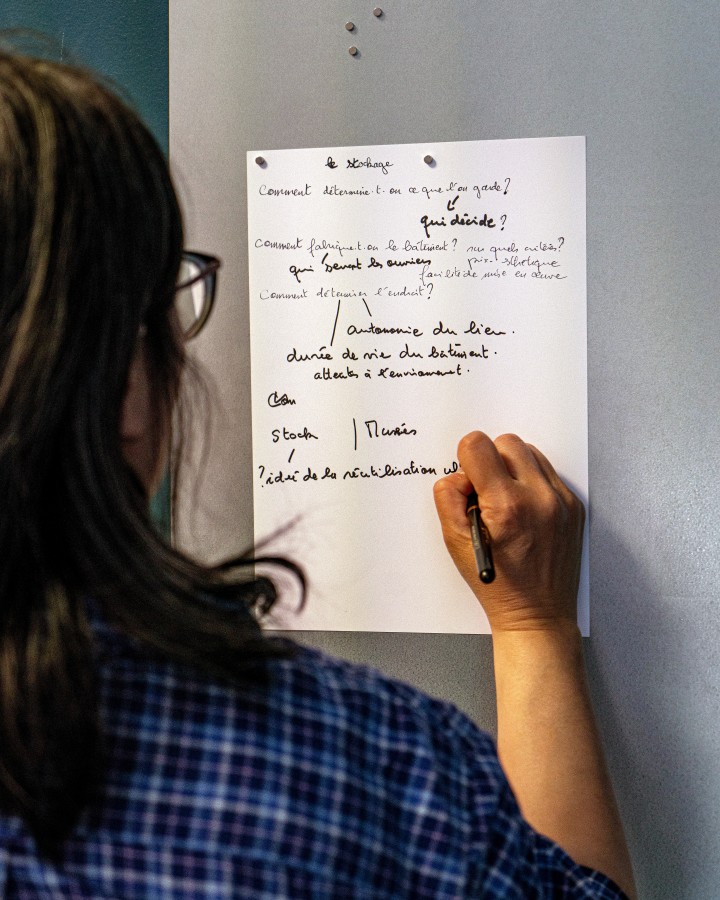 le stockage
Comment détermine-t-on ce que l'on garde?
qui décide?
Comment fabrique-t-on le bâtiment? sur quels critères?
qui seront les ouvriers prix - esthétique
facilité de mise en œuvre
Comment déterminer l'endroit?
autonomie du lieu.
durée de vie du bâtiment.
à l'environnement.
Stock | Musées
? idée de la réutilisation